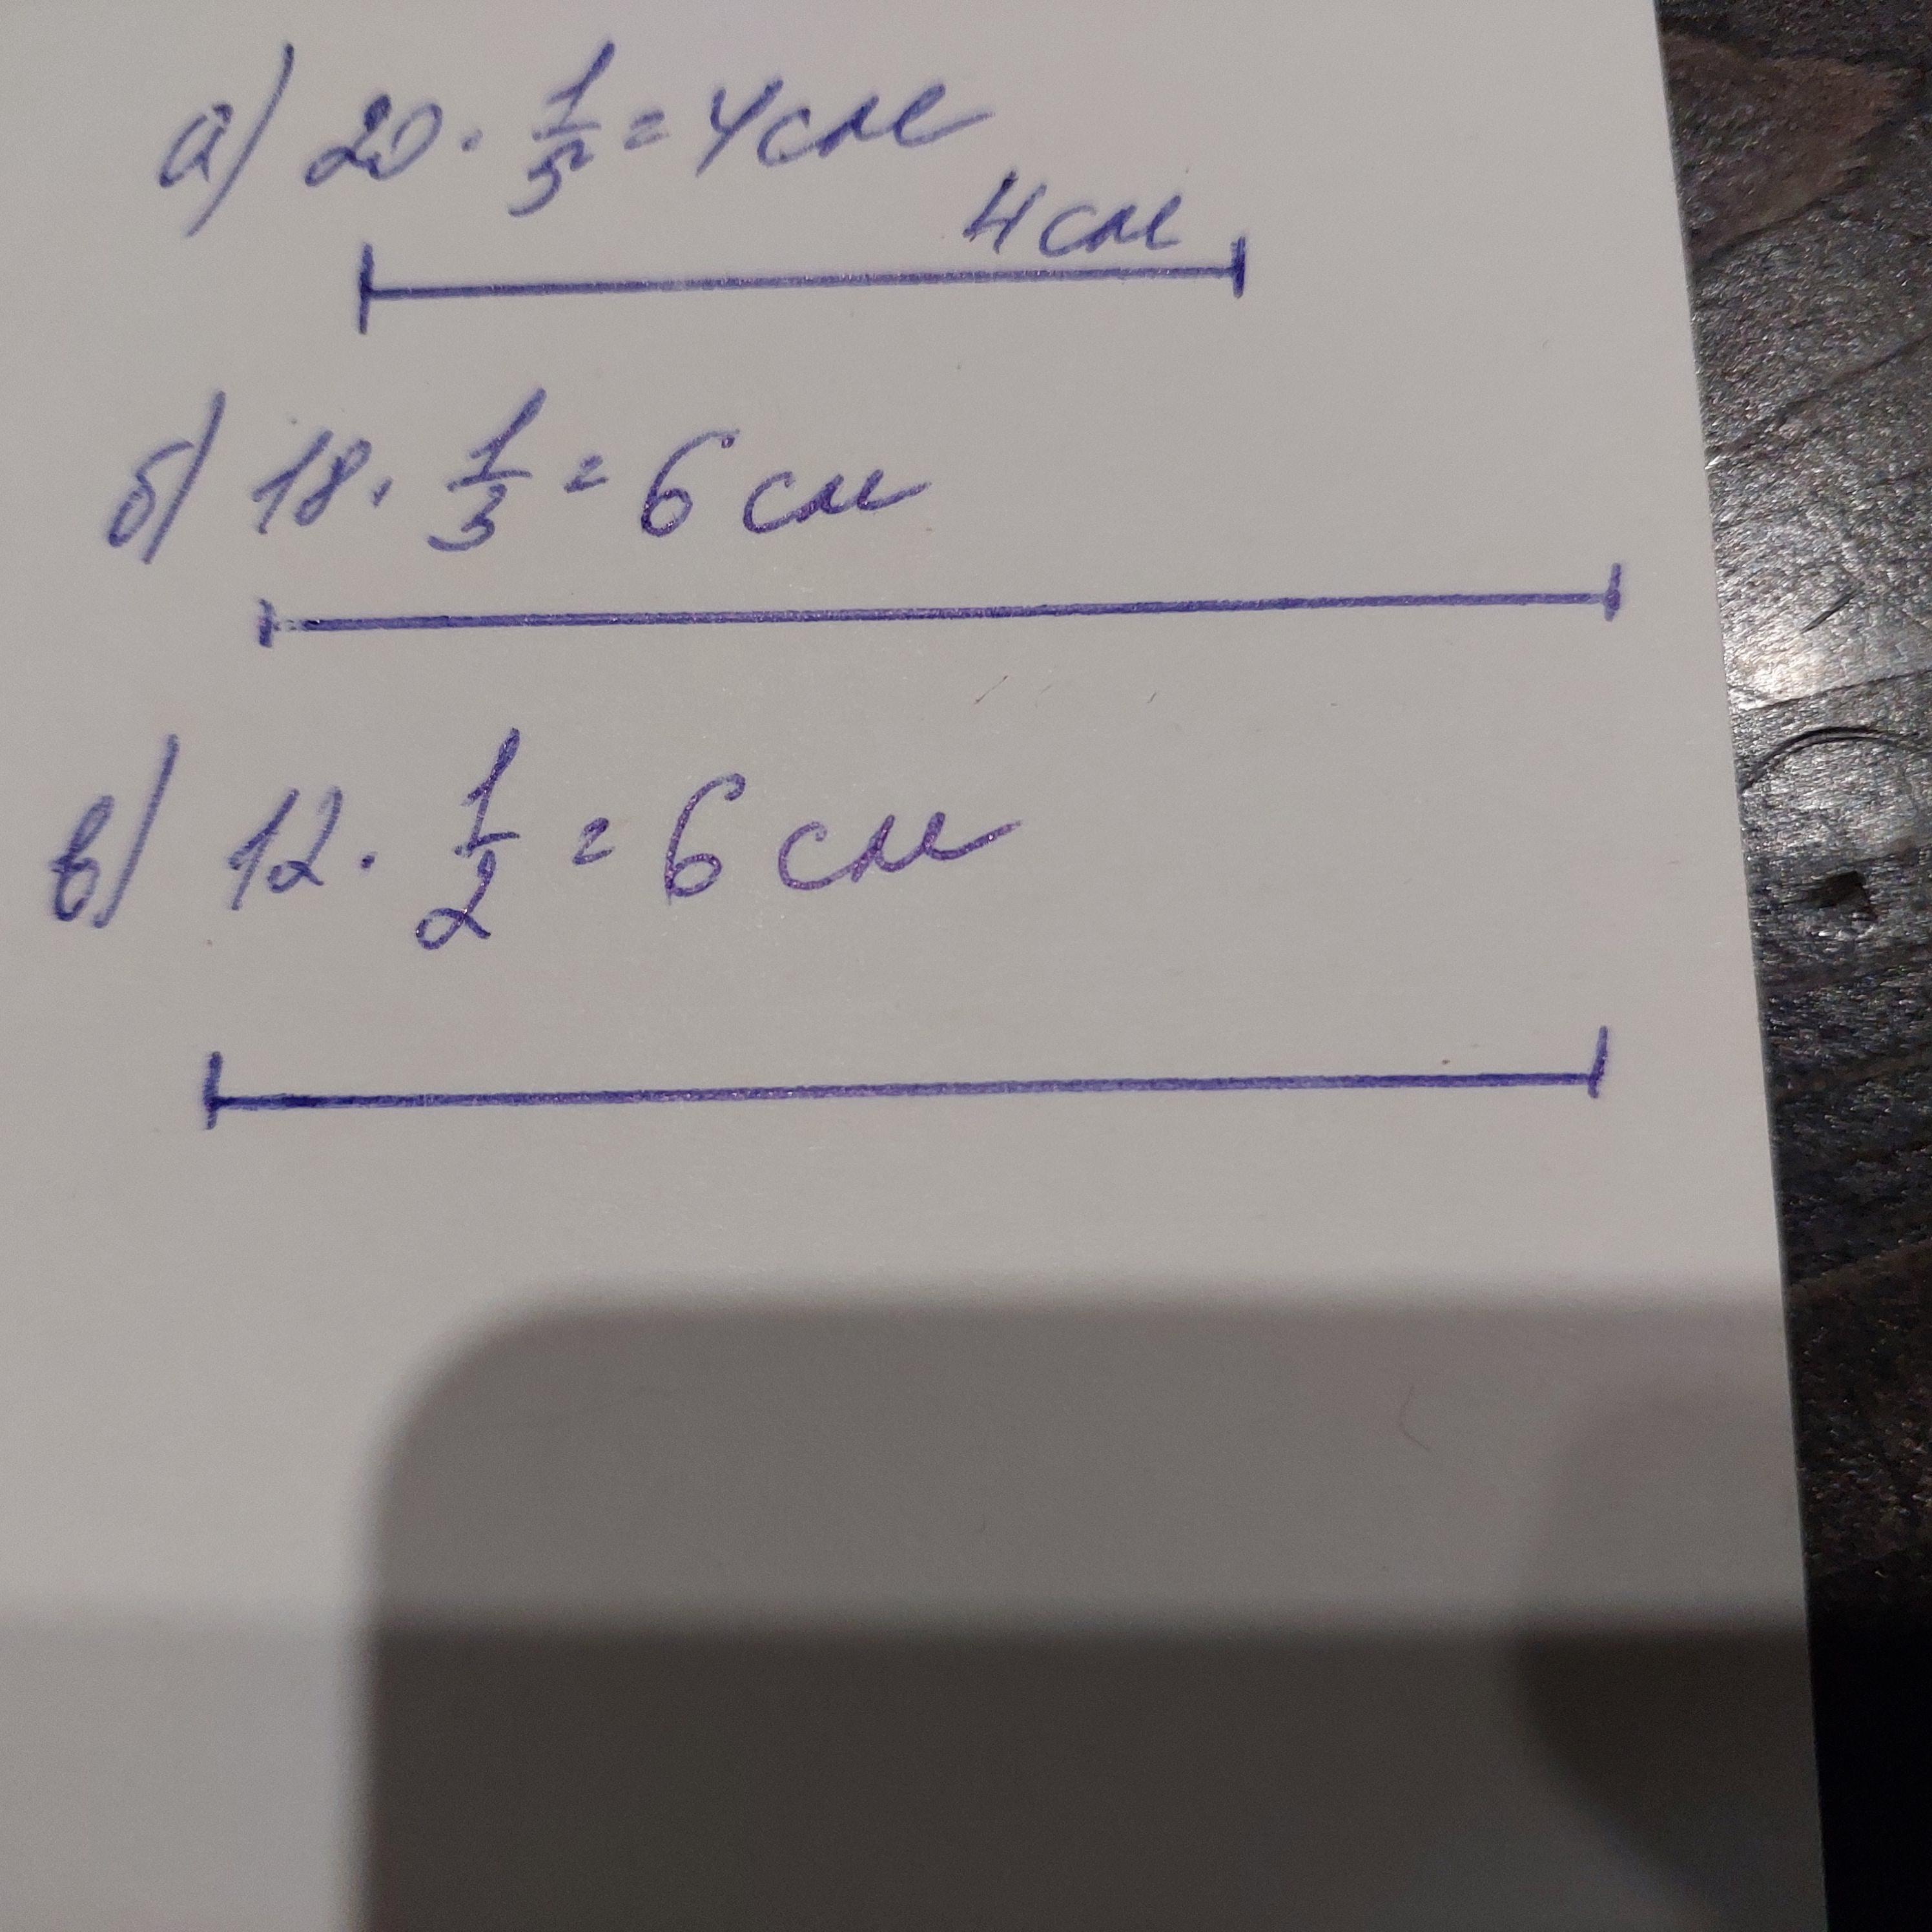 а) 20 · 1/5 = 4 см
4 см
б) 18 · 1/3 = 6 см
в) 12 · 1/2 = 6 см